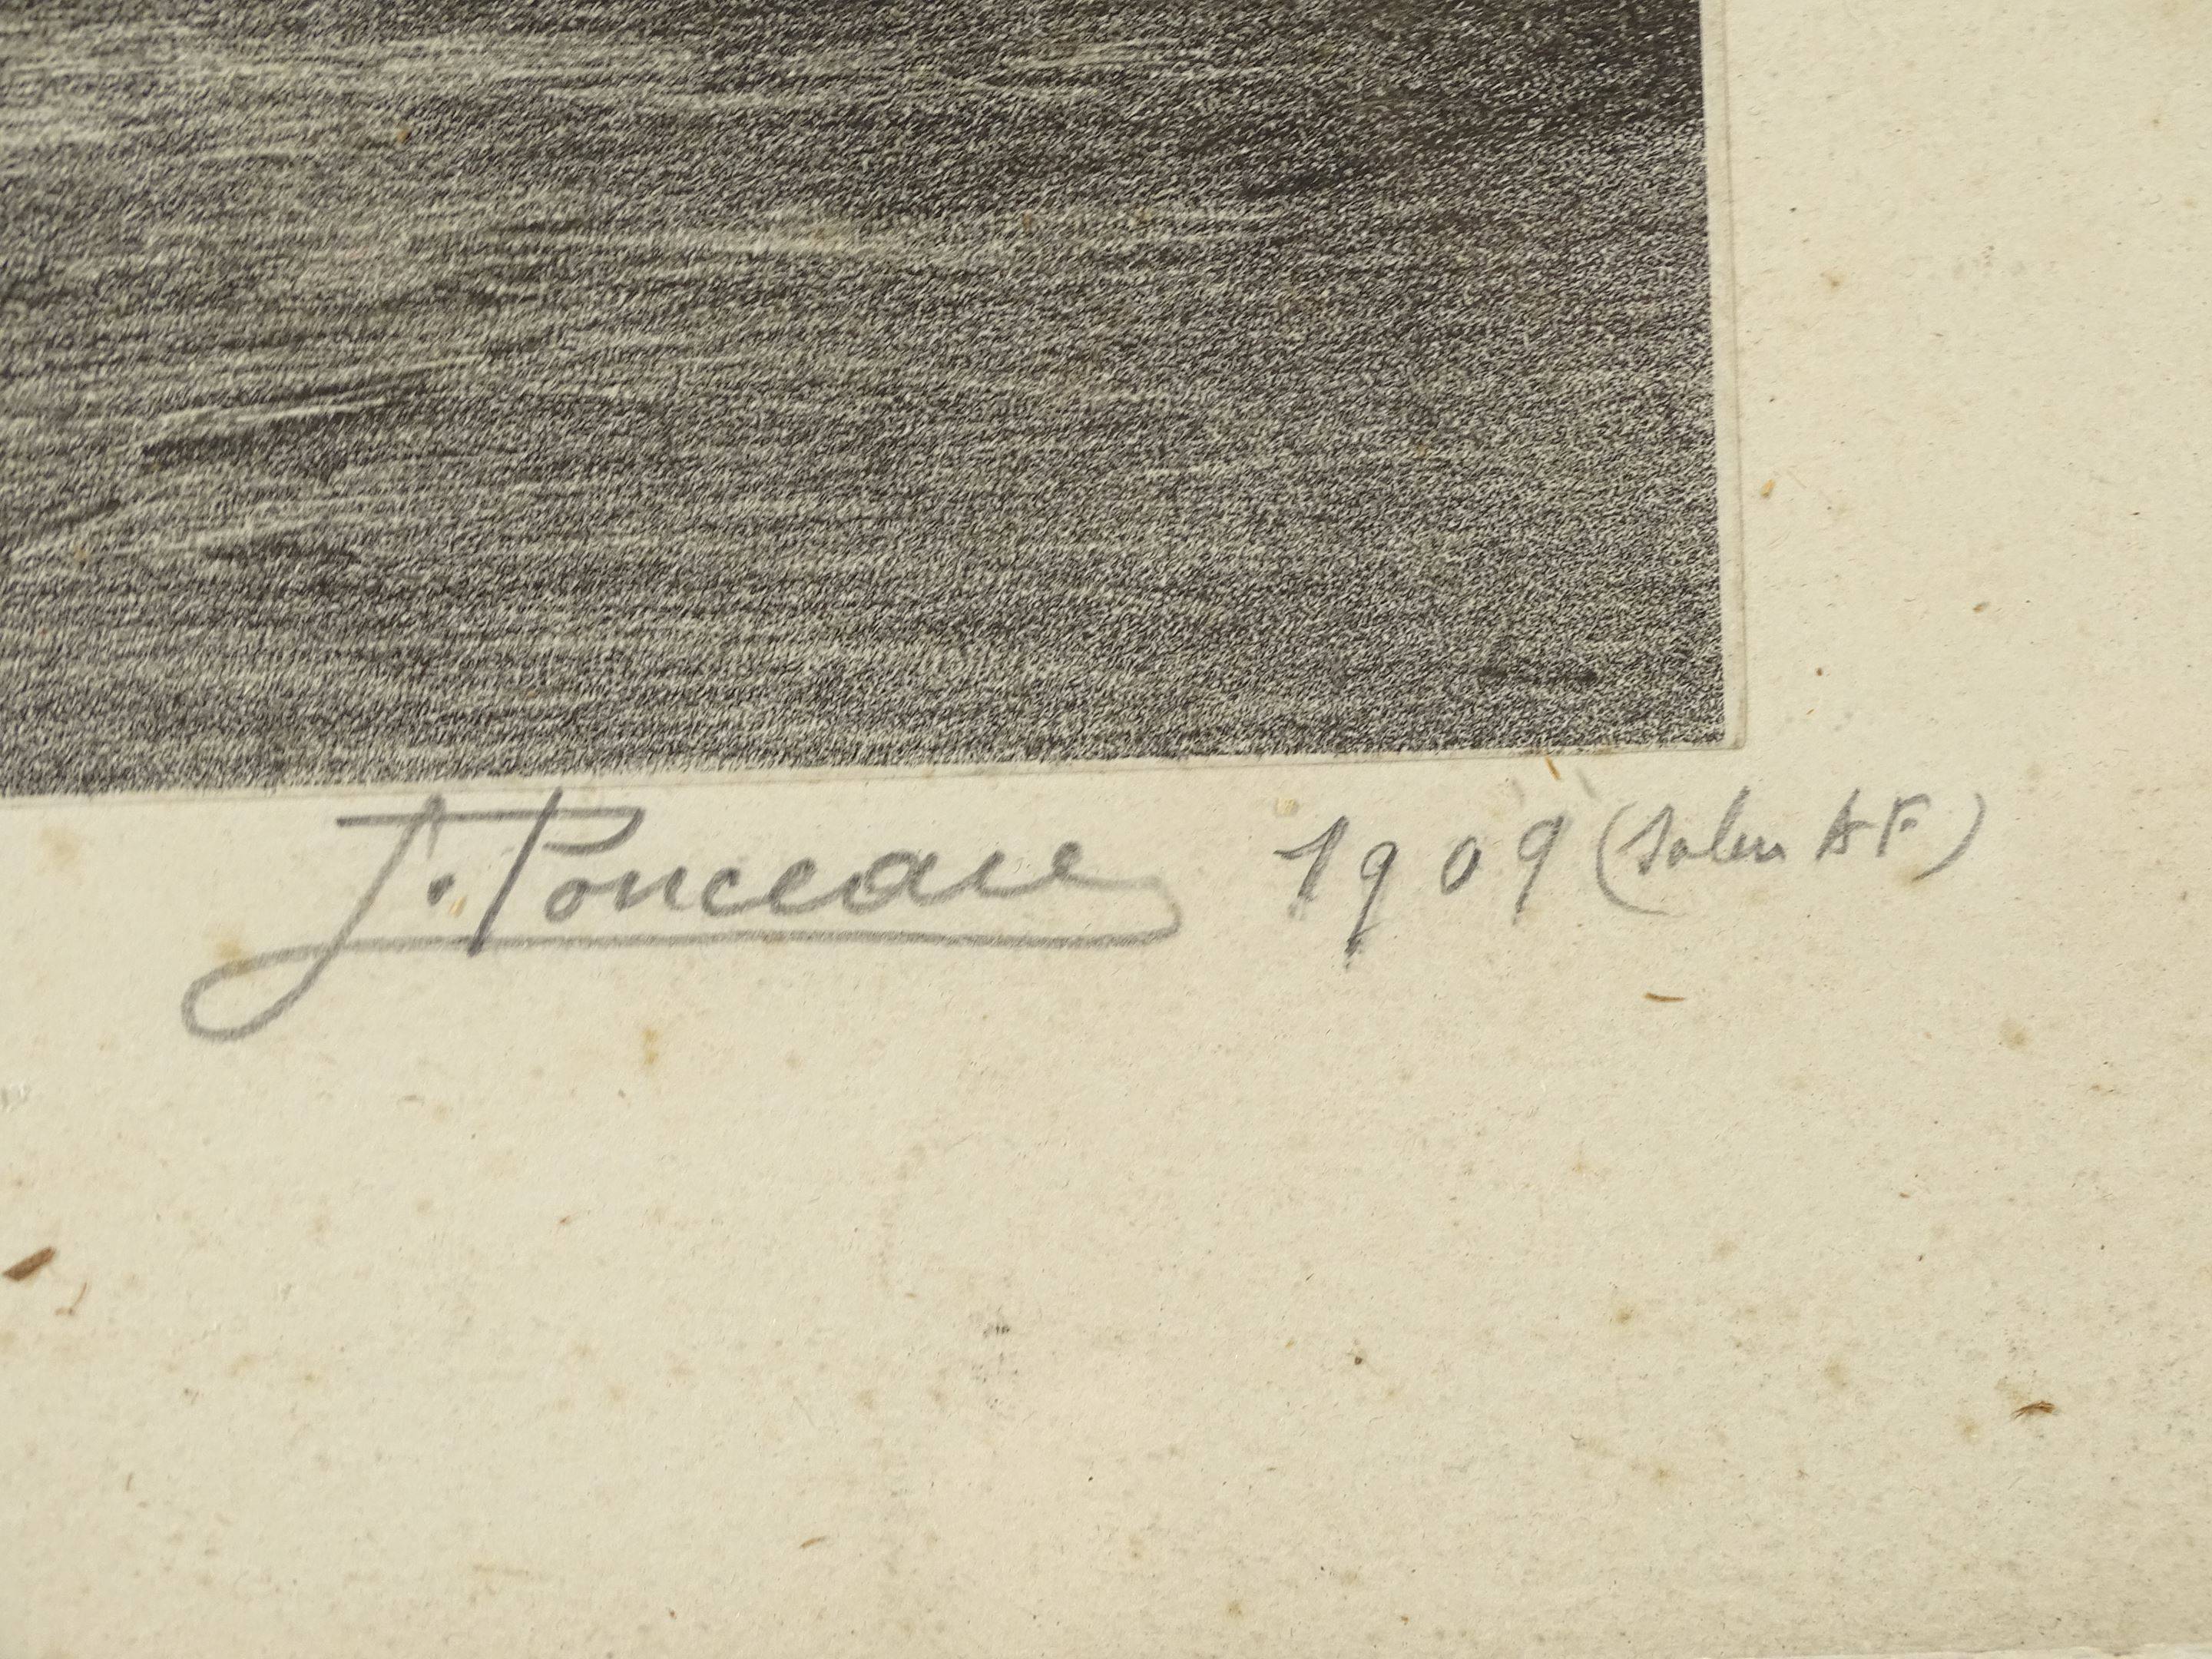 J. Ponceau 1909 (Salon AF)